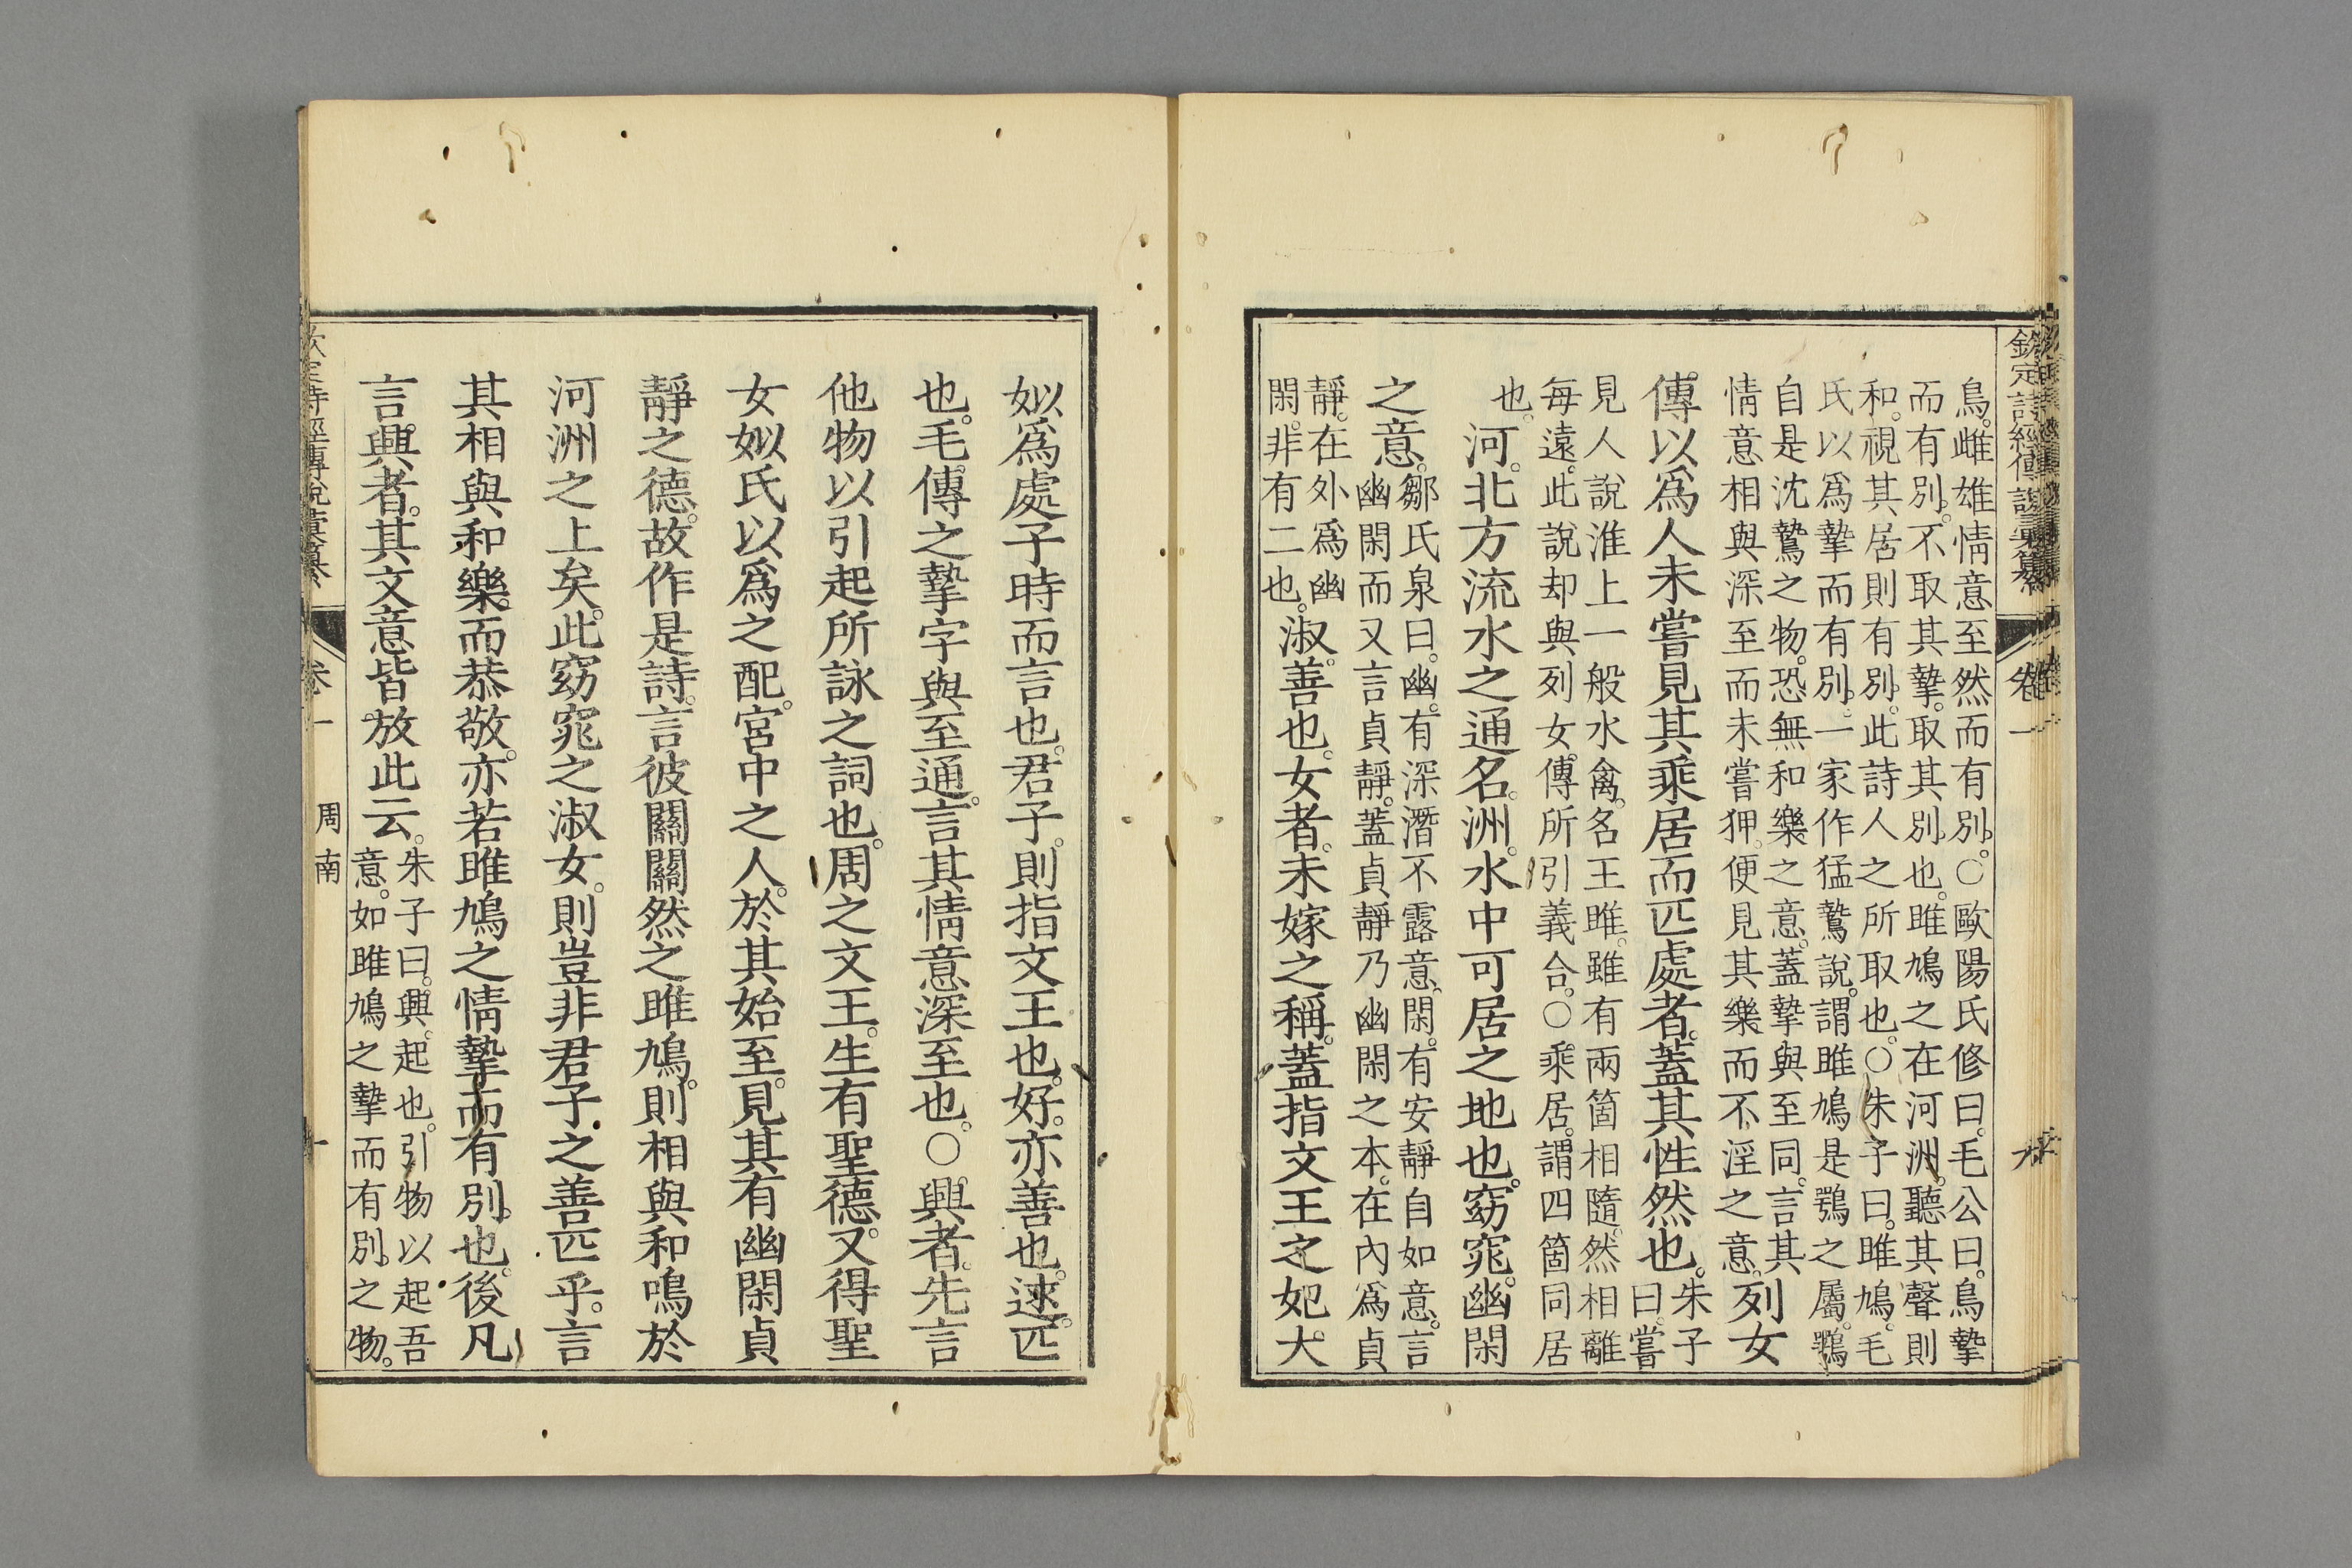 欽定詩經傳說彙纂 卷一
鳥。雌雄情意至然而有別。○歐陽氏修曰。毛公曰。鳥摯
而有別。不取其摯。取其別也。雎鳩之在河洲。聽其聲則
和。視其居則有別。此詩人之所取也。○朱子曰。雎鳩。毛
氏以爲摯而有別。一家作猛鷙說。謂雎鳩是鶚之屬。鶚
自是沈鷙之物。恐無和樂之意。蓋摯與至同。言其
情意相與深至而未嘗狎。便見其樂而不淫之意。列女
傳以爲人未嘗見其乘居而匹處者。蓋其性然也。朱子
曰。嘗
見人說淮上一般水禽。名王雎。雖有兩箇相隨。然相離
每遠。此說却與列女傳所引義合。○乘居。謂四箇同居
也。河。北方流水之通名。洲。水中可居之地也。窈窕。幽閑
之意。鄒氏泉曰。幽。有深潛不露意。閑。有安靜自如意。言
幽閑而又言貞靜。蓋貞靜乃幽閑之本。在內爲貞
靜。在外爲幽
閑。非有二也。淑。善也。女者。未嫁之稱。蓋指文王之妃大
姒爲處子時而言也。君子。則指文王也。好。亦善也。逑。匹
也。毛傳之摯字與至通。言其情意深至也。○興者。先言
他物以引起所詠之詞也。周之文王。生有聖德。又得聖
女姒氏以爲之配。宮中之人。於其始至。見其有幽閑貞
靜之德。故作是詩。言彼關關然之雎鳩。則相與和鳴於
河洲之上矣。此窈窕之淑女。則豈非君子之善匹乎。言
其相與和樂而恭敬。亦若雎鳩之情摯而有別也。後凡
言興者。其文意皆放此云。朱子曰。興。起也。引物以起吾
意。如雎鳩之摯而有別之物。
欽定詩經傳說彙纂 卷一 周南